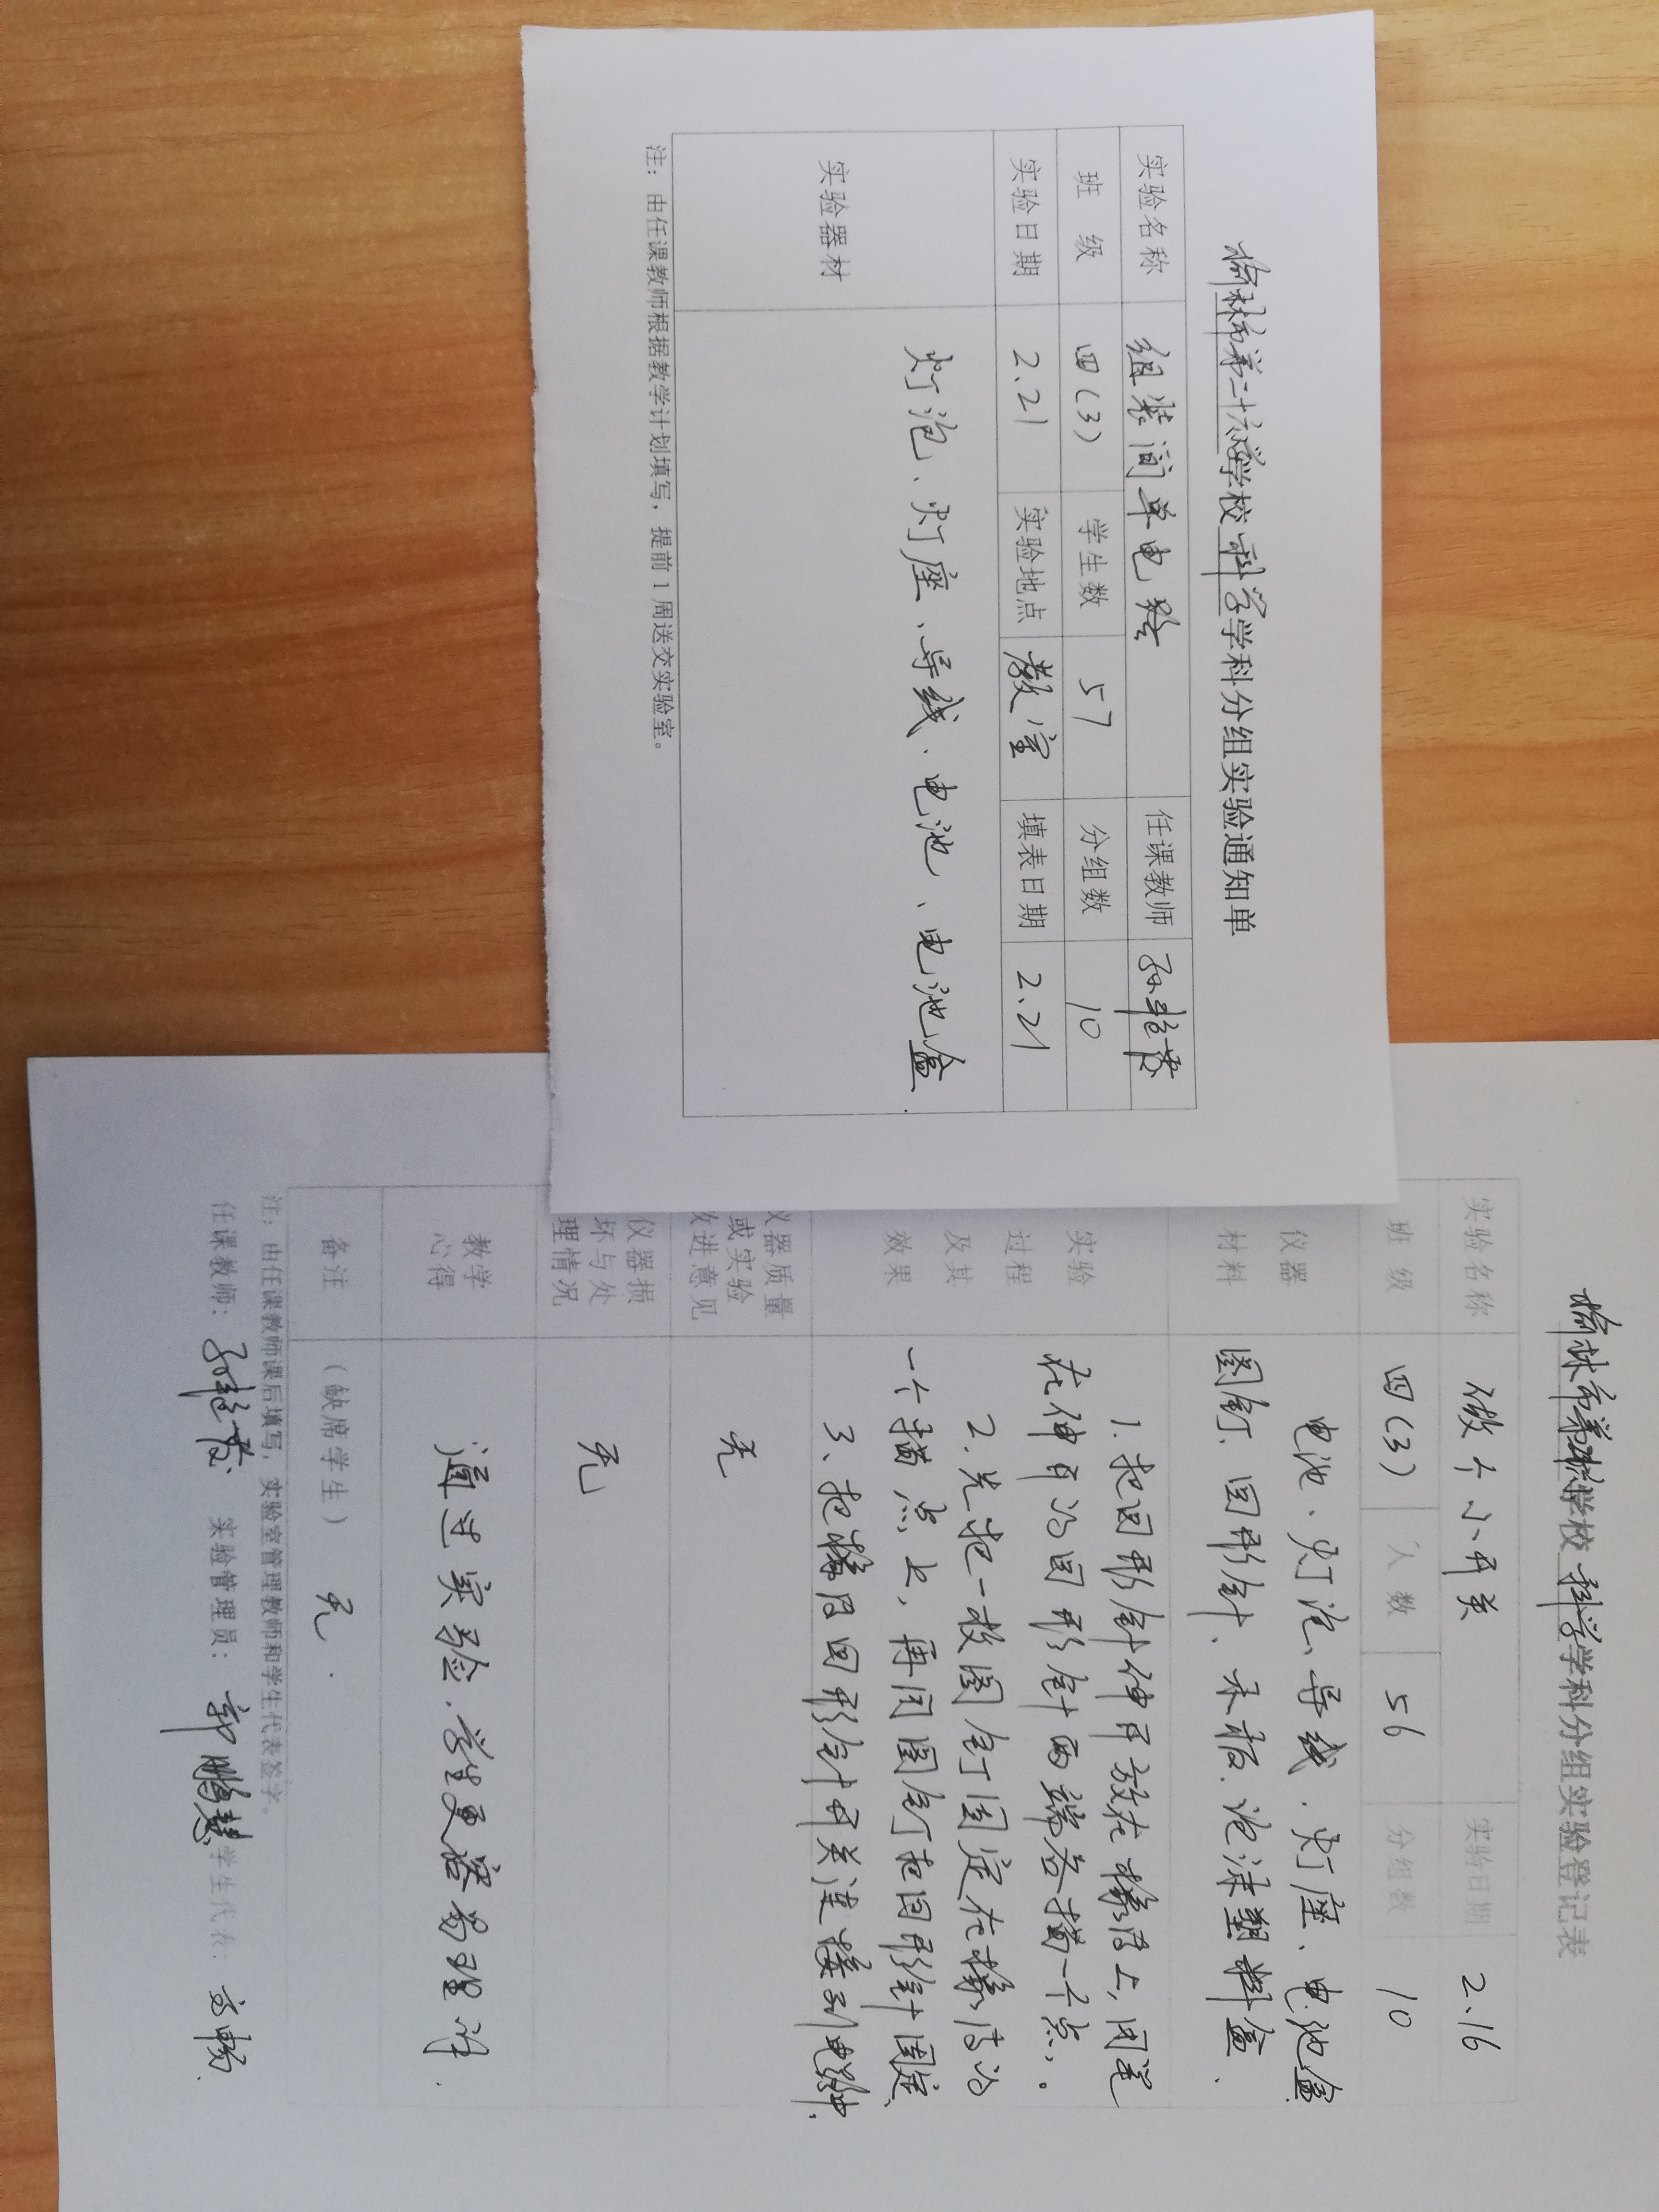 榆林市第二十六小学学校 科学 学科分组实验通知单
实验名称 组装简单电路 任课教师
班 级 四(3) 学生数 57 分组数 10
实验日期 2.21 实验地点 教室 填表日期 2.21
实验器材 灯泡、灯座、导线、电池、电池盒
注：由任课教师根据教学计划填写，提前1周送交实验室。
榆林市第 学校 科学 学科分组实验登记表
实验名称 做个小开关 实验日期 2.16
班 级 四(3) 人数 56 分组数 10
仪器
材料
电池、灯泡、导线、灯座、电池盒
图钉、回形针、木板、泡沫塑料盒、
实验
过程
及其
效果
1.把回形针伸开放在 上,用笔
在伸开的回形针两端各描一个点。
2.先把一枚图钉固定在 的
一个描点上,再用图钉把回形针固定、
3、把 回形针开关连接到电路中,
仪器质量
或实验
改进意见
无
仪器损
坏与处
理情况
无
教学
心得
通过实验,学生更容易理解.
备注 (缺席学生) 无.
注：由任课教师课后填写，实验室管理教师和学生代表签字。
任课教师： 实验管理员：郭鹏慧 学生代表：